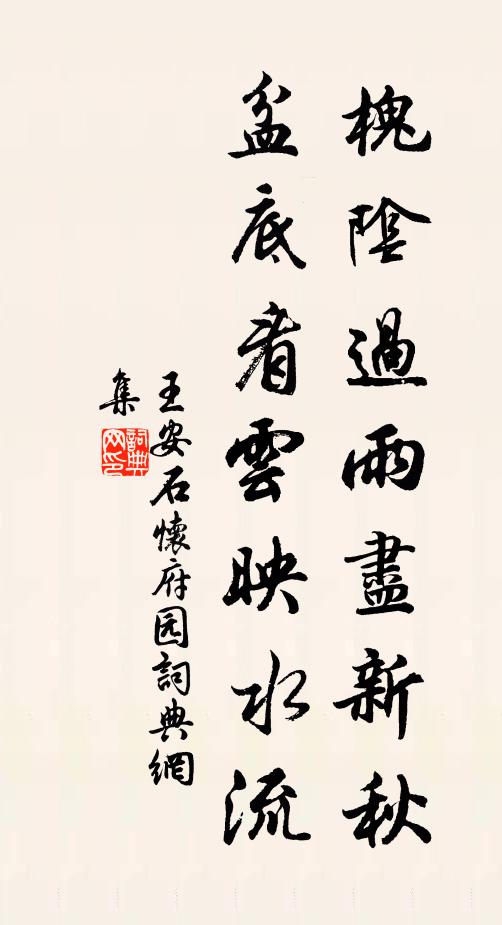 槐陰過雨盡新秋
盆底看雲映水流
王安石懷府园詞典網
集
詞典网印